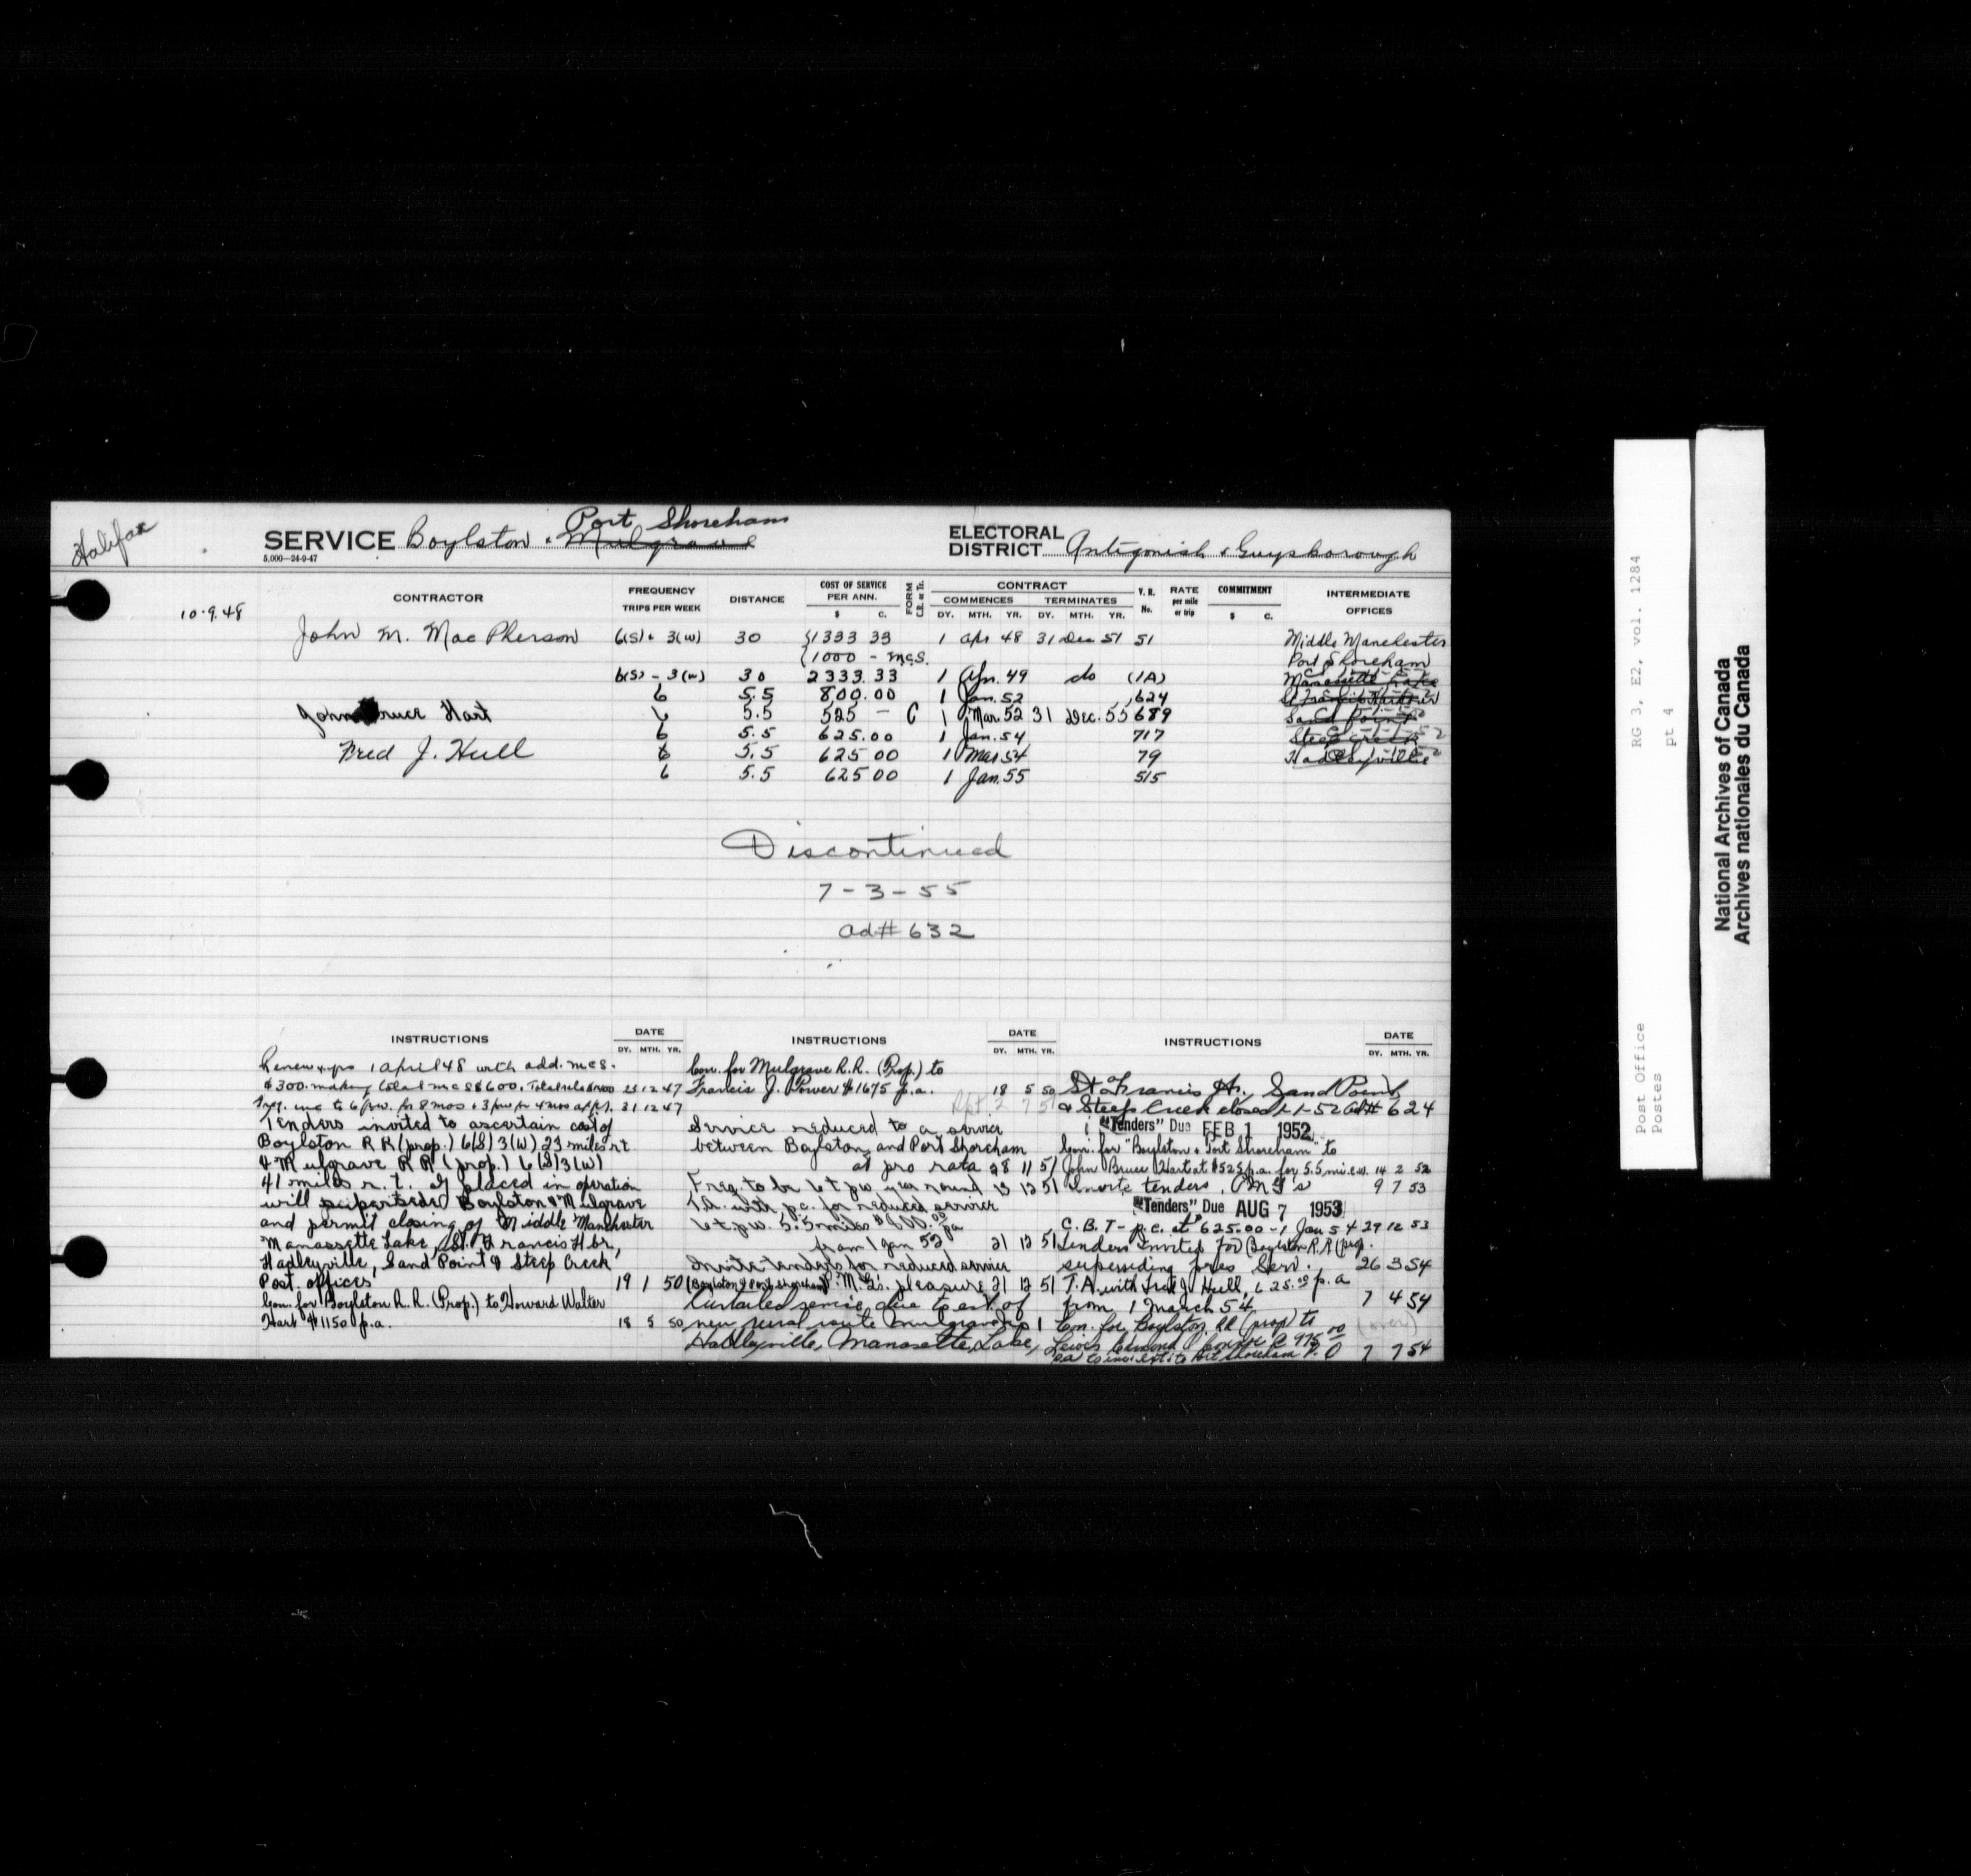 Halifax
SERVICE Boylston & Mulgrave Port Shoreham
5,000—24-9-47
ELECTORAL DISTRICT Antigonish & Guysborough
CONTRACTOR
FREQUENCY TRIPS PER WEEK
DISTANCE
COST OF SERVICE PER ANN. $ C.
FORM
CONTRACT
COMMENCES TERMINATES
DY. MTH. YR. DY. MTH. YR.
V. R. No.
RATE per mile or trip
COMMITMENT $ C.
INTERMEDIATE OFFICES
10.9.48
John M. MacPherson 6(S) & 3(W) 30 1333 33 1 Apr 48 31 Dec 51 51 Middle Manchester
1000 - mcs. Port Shoreham
6(S) - 3(W) 30 2333.33 1 Apr. 49 do (1A) Manassette Lake
6 5.5 800.00 1 Jan. 52 624 St Francis Harbour
John Bruce Hart 6 5.5 525 — C 1 Mar. 52 31 Dec. 55 689 Sand Point
6 5.5 625.00 1 Jan. 54 717 Steep Creek
Fred J. Hull 6 5.5 625 00 1 Mar 54 79 Hadleyville
6 5.5 625 00 1 Jan. 55 515
Discontinued
7-3-55
ad# 632
INSTRUCTIONS DATE DY. MTH. YR.
Renew 1 April 48 with add. mcs.
$300. making total mcs $600. 23 12 47
Freq. inc to 6 p.w. for 8 mos & 3 pw for 4 mos 31 12 47
Tenders invited to ascertain cost of
Boylston R R (prop.) 6(S) 3(W) 23 miles r.t.
& Mulgrave R R (prop.) 6(S) 3(W)
41 miles r.t. If placed in operation
will supersede Boylston & Mulgrave
and permit closing of Middle Manchester
Manassette Lake, St. Francis Hbr,
Hadleyville, Sand Point & Steep Creek
Post offices 19 1 50
Con. for Boylston R.R. (Prop.) to Howard Walter
Hart $1150 p.a. 18 5 50
INSTRUCTIONS DATE DY. MTH. YR.
Con. for Mulgrave R.R. (Prop.) to
Francis J. Power $1675 p.a. 18 5 50
Service reduced to a service
between Boylston and Port Shoreham
at pro rata 28 11 51
Freq. to be 6 t pw year round 13 12 51
T.A. with p.c. for reduced service
6 t.p.w. 5.5 miles $800.00 pa
from 1 Jan 52 21 12 51
Invite tenders for reduced service
(Boylston & Port Shoreham) P.M.G's. pleasure 21 12 51
Curtailed service due to est. of
new rural route Mulgrave
Hadleyville, Manassette Lake,
INSTRUCTIONS DATE DY. MTH. YR.
St Francis Hr., Sand Point
& Steep Creek closed 1-1-52 Ad# 624
"Tenders" Due FEB 1 1952
Con. for "Boylston & Port Shoreham" to
John Bruce Hart at $525 p.a. for 5.5 mi. e.w. 14 2 52
Invite tenders, PMG's 9 7 53
"Tenders" Due AUG 7 1953
C.B.T- p.c. at $625.00 - 1 Jan 54 29 12 53
Tenders invited for (Boylston R.R (prop.
superseding pres Serv. 26 3 54
T.A. with Fred J Hull, 625.00 p.a
from 1 March 54 7 4 54
Con. for Boylston RR (prop) to (over)
Lewis Edmond @ 975.00
to Port Shoreham P.O 7 7 54
Post Office RG 3, E2, vol. 1284
Postes pt 4
National Archives of Canada
Archives nationales du Canada